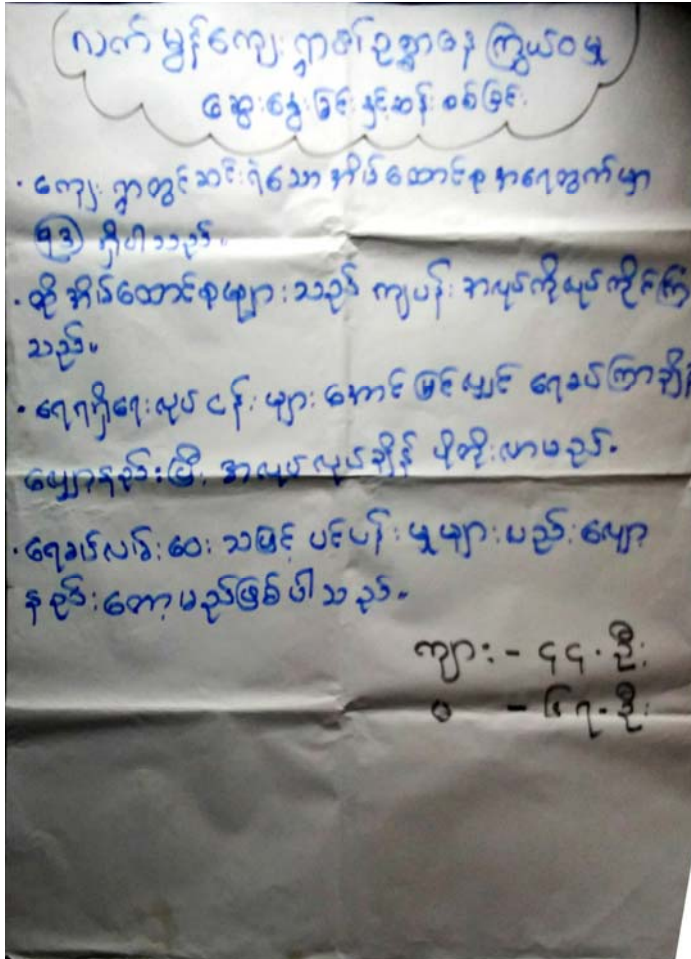 လက်မွန်ကျေးရွာ၏ဥစ္စာဓနကြွယ်ဝမှု
ဆွေးနွေးခြင်းနှင့်ဆန်းစစ်ခြင်း
• ကျေးရွာတွင်ဆင်းရဲသောအိမ်ထောင်စုအရေတွက်မှာ
ရှိပါသည်။
• ထိုအိမ်ထောင်စုများသည် ကျပန်းအလုပ်ကိုလုပ်ကိုင်ကြ
သည်။
• ရေရရှိရေးလုပ်ငန်းများအောင်မြင်လျှင် ရေခပ်ကြာချိန်
လျော့နည်းပြီး အလုပ်လုပ်ချိန် ပိုတိုးလာမည်။
• ရေခပ်လမ်းဝေးသဖြင့် ပင်ပန်းမှုများမည်းလျော့
နည်းတော့မည်ဖြစ်ပါသည်။
ကျား - ၄၄ - ဦး
မ - ၆၇ - ဦး